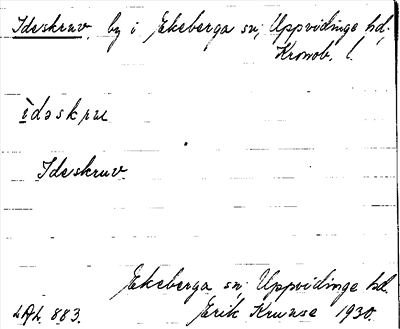 Ideskruv, by i Ekeberga sn, Uppvidinge hd,
Kronob. l.
ìdəskru
Ideskruv
Ekeberga sn, Uppvidinge hd.
LAL 883. Erik Kruuse 1930.